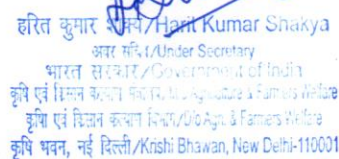 हरित कुमार /Harit Kumar Shakya
/Under Secretary
भारत सरकार/Government of India
कृषि एवं किसान कल्याण Agriculture & Farmers Welfare
कृषि एवं किसान कल्याण विभाग/D/o Agri. & Farmers Welfare
कृषि भवन, नई दिल्ली/Krishi Bhawan, New Delhi-110001